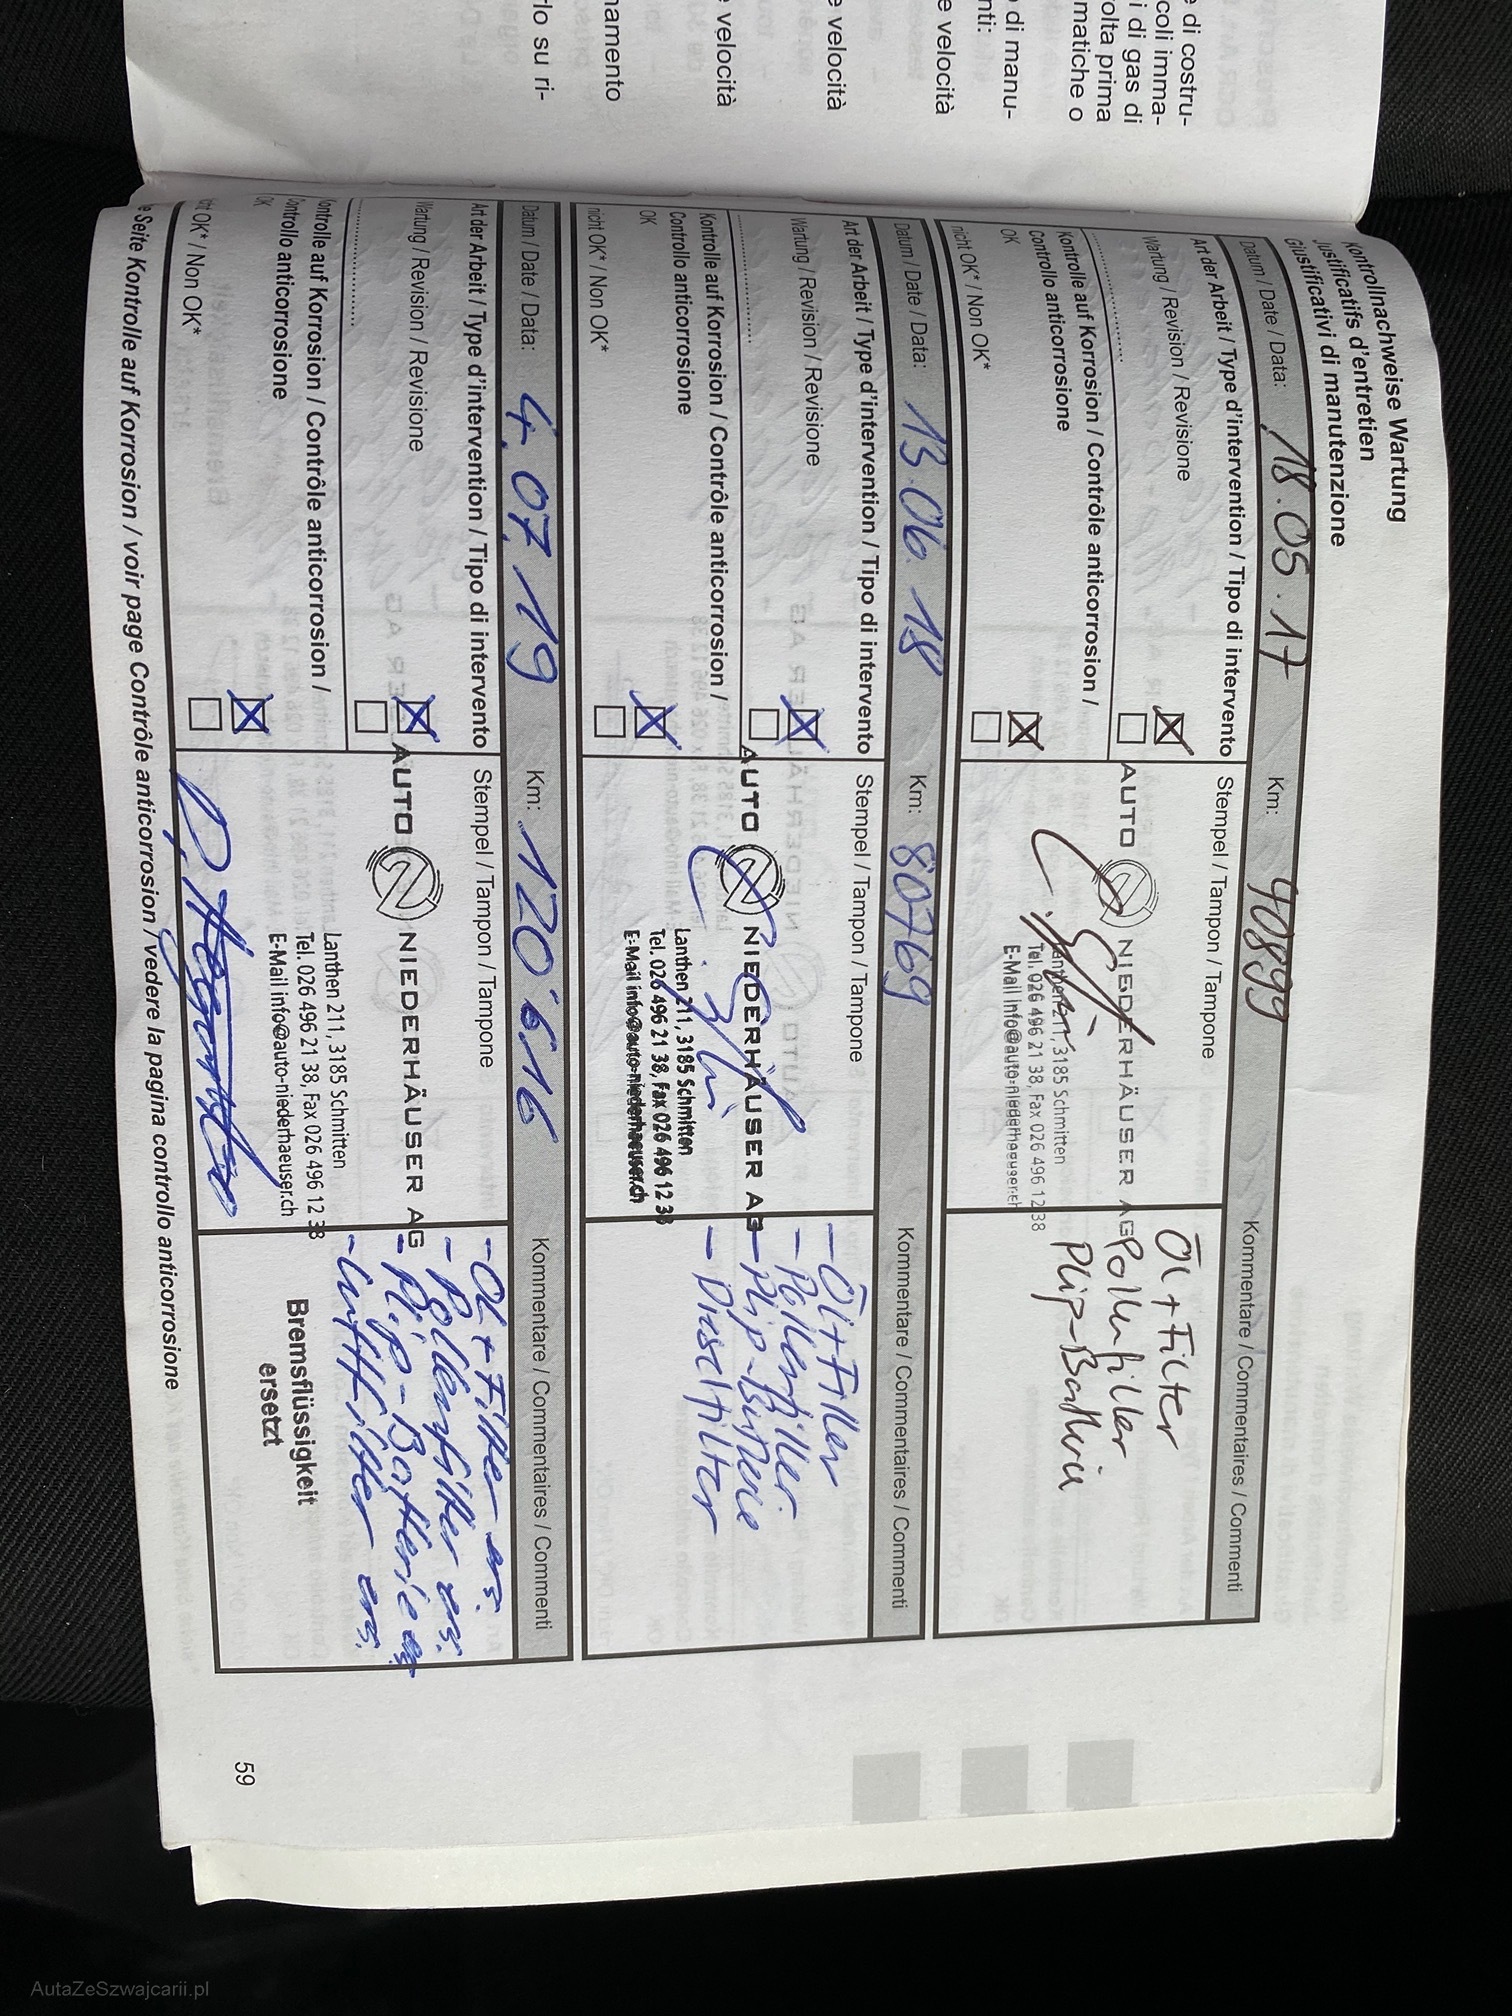 e di costru-
coli imma-
i di gas di
olta prima
matiche o
nti:
di manu-
e velocità
e velocità
e velocità
namento
rlo su ri-
Kontrollnachweise Wartung
Justificatifs d'entretien
Giustificativi di manutenzione
Datum / Date / Data: 18.05.17 Km: 40899 Kommentare / Commentaires / Commenti
Art der Arbeit / Type d'intervention / Tipo di intervento
Wartung / Revision / Revisione
Kontrolle auf Korrosion / Contrôle anticorrosion /
Controllo anticorrosione
OK
nicht OK* / Non OK*
Stempel / Tampon / Tampone
AUTO NIEDERHÄUSER AG
Lanthen 211, 3185 Schmitten
Tel. 026 496 21 38, Fax 026 496 12 38
E-Mail info@auto-niederhaeuser.ch
Öl + Filter
Pollenfilter
Plip-Batterie
Datum / Date / Data: 13.06.18 Km: 80769 Kommentare / Commentaires / Commenti
Art der Arbeit / Type d'intervention / Tipo di intervento
Wartung / Revision / Revisione
Kontrolle auf Korrosion / Contrôle anticorrosion /
Controllo anticorrosione
OK
nicht OK* / Non OK*
Stempel / Tampon / Tampone
AUTO NIEDERHÄUSER AG
Lanthen 211, 3185 Schmitten
Tel. 026 496 21 38, Fax 026 496 12 38
E-Mail info@auto-niederhaeuser.ch
- Öl + Filter
- Pollenfilter
- Plip-Batterie
- Dieselfilter
Datum / Date / Data: 4.07.19 Km: 120'616 Kommentare / Commentaires / Commenti
Art der Arbeit / Type d'intervention / Tipo di intervento
Wartung / Revision / Revisione
ontrolle auf Korrosion / Contrôle anticorrosion /
ontrollo anticorrosione
OK
cht OK* / Non OK*
Stempel / Tampon / Tampone
AUTO NIEDERHÄUSER AG
Lanthen 211, 3185 Schmitten
Tel. 026 496 21 38, Fax 026 496 12 38
E-Mail info@auto-niederhaeuser.ch
- Öl + Filter ers.
- Pollenfilter ers.
- Plip-Batterie ers
- Luftfilter ers.
Bremsflüssigkeit
ersetzt
e Seite Kontrolle auf Korrosion / voir page Contrôle anticorrosion / vedere la pagina controllo anticorrosione
59
AutaZeSzwajcarii.pl